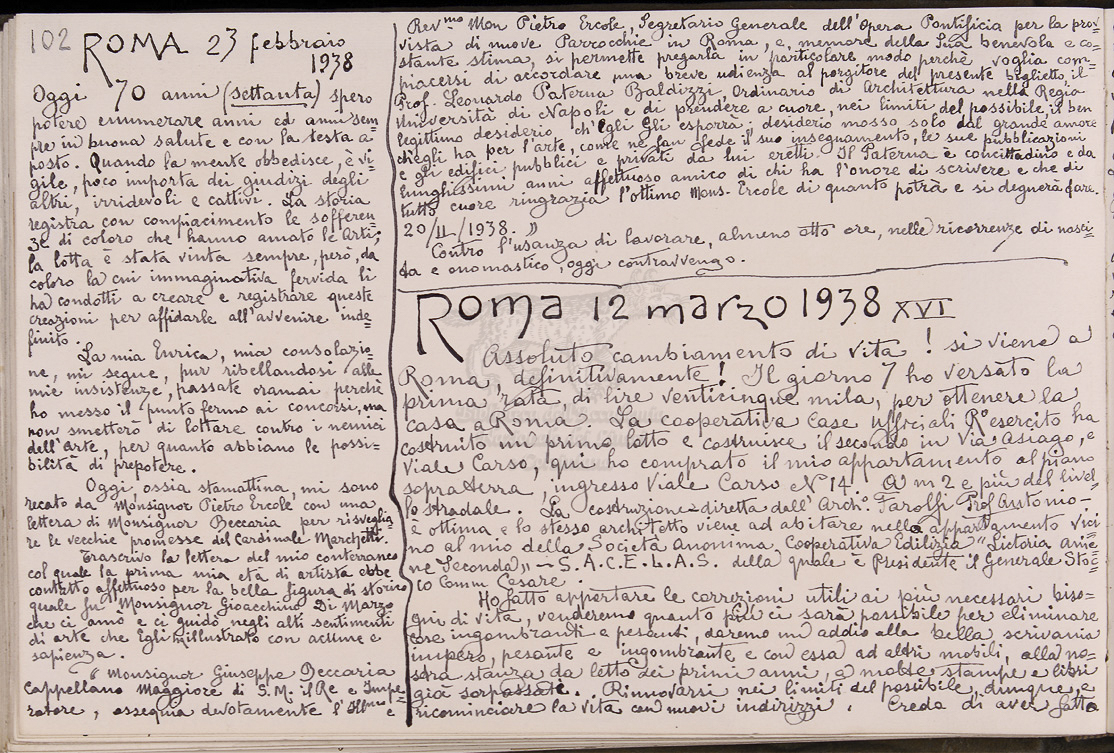 102 ROMA 23 febbraio
1938
Oggi 70 anni (settanta) spero
potere enumerare anni ed anni sem=
pre in buona salute e con la testa a
posto. Quando la mente obbedisce, è vi=
gile, poco importa dei giudizi degli
altri, irridevoli e cattivi. La storia
registra con compiacimento le sofferen=
ze di coloro che hanno amato le Arti;
la lotta è stata vinta sempre, però, da
coloro la cui immaginativa fervida li
ha condotti a creare e registrare queste
creazioni per affidarle all'avvenire inde=
finito.
La mia Enrica, mia consolazio=
ne, mi segue, pur ribellandosi alle
mie insistenze, passate oramai perchè
ho messo il punto fermo ai concorsi, ma
non smetterò di lottare contro i nemici
dell'arte, per quanto abbiano le possi=
bilità di prepotere.
Oggi, ossia stamattina, mi sono
recato da Monsignor Pietro Ercole con una
lettera di Monsignor Beccaria per risveglia=
re le vecchie promesse del Cardinale Marchetti.
Trascrivo la lettera del mio conterraneo
col quale la prima mia età di artista ebbe
contatto affettuoso per la bella figura di storico
quale fu Monsignor Gioacchino Di Marzo
che ci amò e ci guidò negli alti sentimenti
di arte che Egli illustrato con acume e
sapienza.
"Monsignor Giuseppe Beccaria
Cappellano Maggiore di S. M. il Re e Impe=
ratore, ossequia devotamente l'Illmo e
Revmo Mon Pietro Ercole, Segretario Generale dell'Opera Pontificia per la prov=
vista di nuove Parrocchie in Roma, e, memore della Sua benevola e co=
stante stima, si permette pregarla in particolare modo perchè voglia com=
piacersi di accordare una breve udienza al porgitore del presente biglietto, il
Prof. Leonardo Paterna Baldizzi, Ordinario di Architettura nella Regia
Università di Napoli e di prendere a cuore, nei limiti del possibile, il ben
legittimo desiderio ch'Egli Gli esporrà: desiderio mosso solo dal grande amore
ch'egli ha per l'arte, come ne fan fede il suo insegnamento, le sue pubblicazioni
e gli edifici pubblici e privati da lui eretti. Il Paterna è concittadino e da
lunghissimi anni affettuoso amico di chi ha l'onore di scrivere e che di
tutto cuore ringrazia l'ottimo Mons. Ercole di quanto potrà e si degnerà fare.
20/II-/1938. "
Contro l'usanza di lavorare, almeno otto ore, nelle ricorrenze di nasci=
ta e onomastico, oggi contravvengo.
Roma 12 marzo 1938 XVI
Assoluto cambiamento di vita! si viene a
Roma, definitivamente! Il giorno 7 ho versato la
prima rata, di lire venticinque mila, per ottenere la
casa a Roma. La cooperativa Case ufficiali R° esercito ha
costruito un primo lotto e costruisce il secondo in Via Asiago, e
Viale Carso, qui ho comprato il mio appartamento al piano
sopra terra, ingresso Viale Carso N° 14. a m 2 e più del livel=
lo stradale. La costruzione diretta dall'Arch°. Farolfi Prof Antonio-
è ottima e lo stesso architetto viene ad abitare nell'appartamento vici
no al mio della Società Anonima, Cooperativa Edilizia "Lictoria Ame=
ne Seconda" - S.A.C.E.L.A.S. della quale è Presidente il Generale Stoc=
co Comm Cesare.
Ho fatto apportare le correzioni utili ai più necessari biso=
gni di vita, venderemo quanto più ci sarà possibile per eliminare
cose ingombranti e pesanti, daremo un addio alla bella scrivania
impero, pesante e ingombrante e con essa ad altri mobili, alla no=
stra stanza da letto dei primi anni, a molte stampe e libri
già sorpassate. Rinnovarsi nei limiti del possibile, dunque, e
ricominciare la vita con nuovi indirizzi. Credo di aver fatto